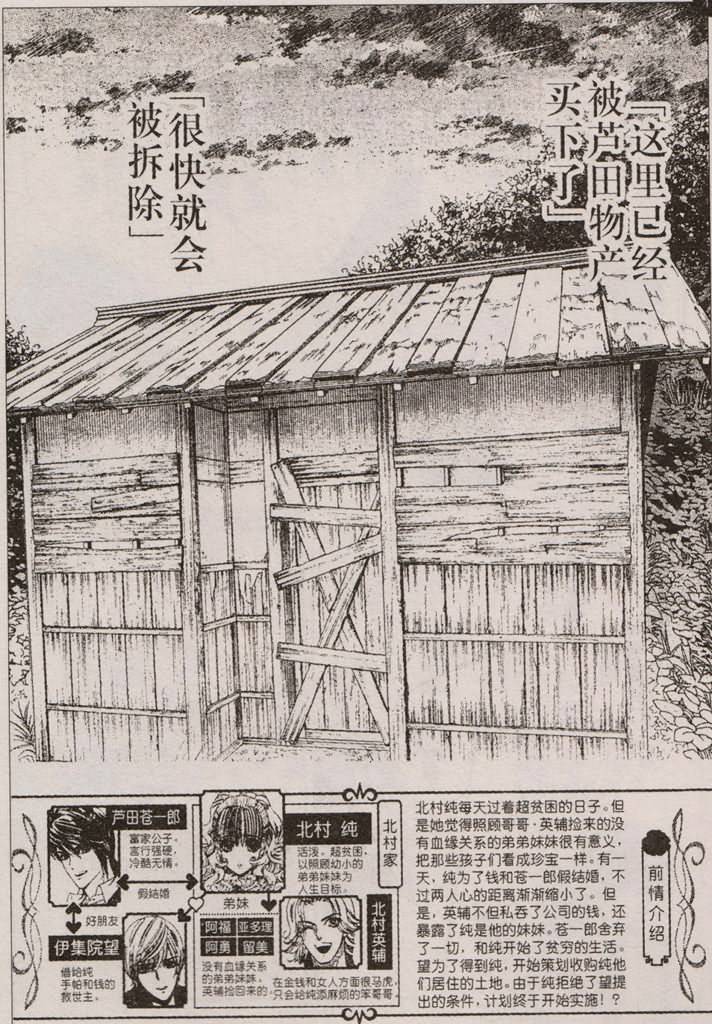 「这里已经
被芦田物产
买下了」
「很快就会
被拆除」
芦田苍一郎
富家公子。
言行强硬,
冷酷无情。
假结婚
北村 纯
活泼。超贫困,
以照顾幼小的
弟弟妹妹为
人生目标。
北村家
好朋友
弟妹
伊集院望
借给纯
手帕和钱的
救世主。
阿福
亚多理
阿勇
留美
没有血缘关系
的弟弟妹妹,
英辅捡回来的。
北村英辅
在金钱和女人方面很马虎,
只会给纯添麻烦的笨哥哥。
前情介绍
北村纯每天过着超贫困的日子。但
是她觉得照顾哥哥·英辅捡来的没
有血缘关系的弟弟妹妹很有意义,
把那些孩子们看成珍宝一样。有一
天,纯为了钱和苍一郎假结婚,不
过两人心的距离渐渐缩小了。但
是,英辅不但私吞了公司的钱,还
暴露了纯是他的妹妹。苍一郎舍弃
了一切,和纯开始了贫穷的生活。
望为了得到纯,开始策划收购纯他
们居住的土地。由于纯拒绝了望提
出的条件,计划终于开始实施!?